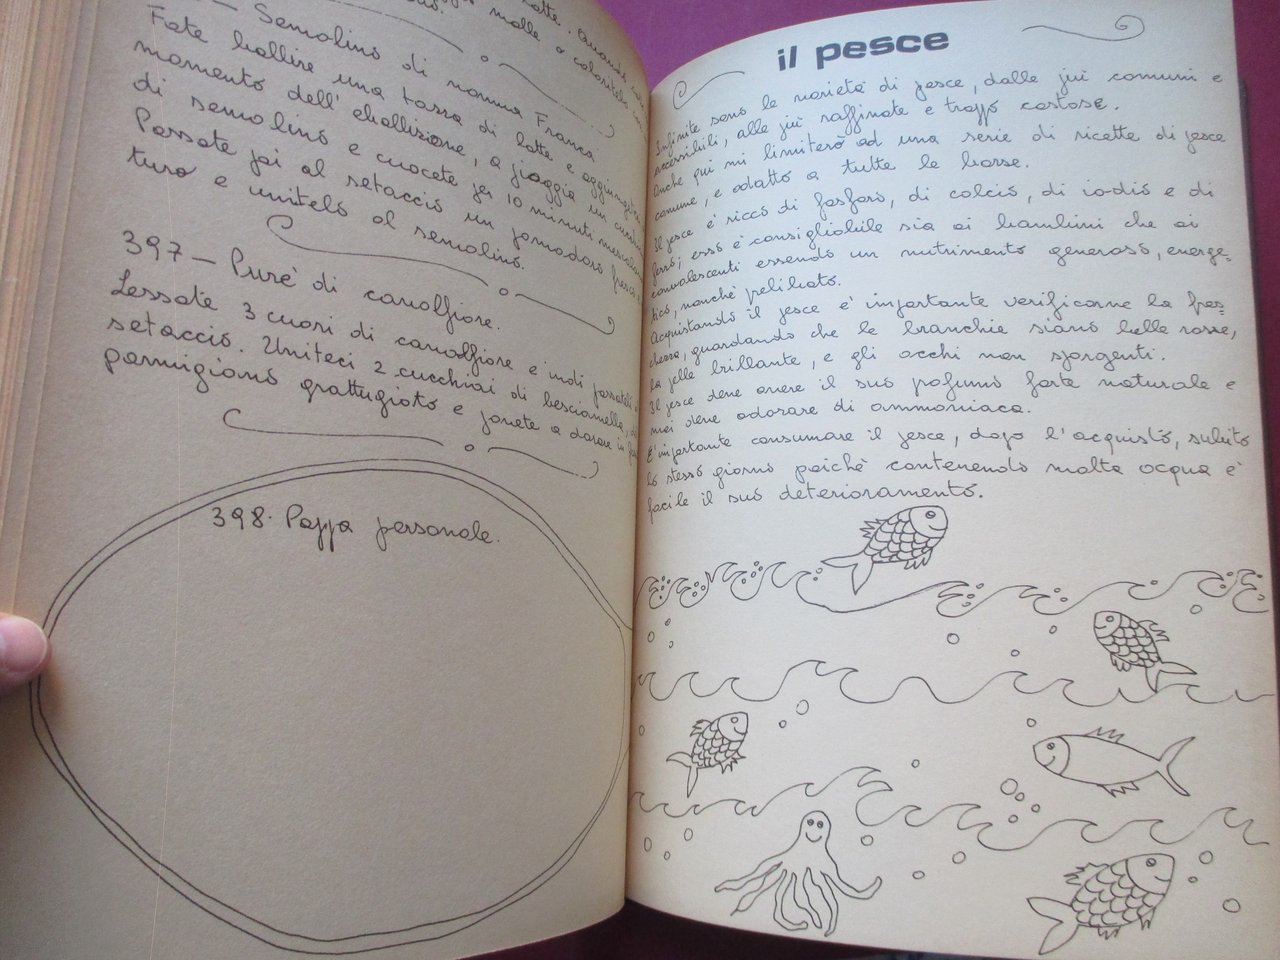 latte. Quando
molle o coloritelo
— Semolino di nonna Franca
Fate bollire una tazza di latte e aggiungete
momento dell'ebollizione, a pioggia un cucchiaio
di semolino e cuocete per 10 minuti mescolando
Passate poi al setaccio un pomodoro fresco
turo e unitelo al semolino.
397 — Purè di cavolfiore.
Lessate 3 cuori di cavolfiore e poi passateli
setaccio. Uniteci 2 cucchiai di besciamella,
parmigiano grattugiato e ponete a dorare in
398. Pappa personale.
il pesce
Infinite sono le varietà di pesce, dalle più comuni e
accessibili, alle più raffinate e troppo costose.
Anche qui mi limiterò ad una serie di ricette di pesce
comune, e adatto a tutte le borse.
Il pesce è ricco di fosforo, di calcio, di iodio e di
ferro; esso è consigliabile sia ai bambini che ai
convalescenti essendo un nutrimento generoso, energe=
tico, nonchè prelibato.
Acquistando il pesce è importante verificarne la fres=
chezza, guardando che le branchie siano belle rosse,
la pelle brillante, e gli occhi non sporgenti.
Il pesce deve avere il suo profumo forte naturale e
mai deve odorare di ammoniaca.
E' importante consumare il pesce, dopo l'acquisto, subito
lo stesso giorno poichè contenendo molta acqua è
facile il suo deterioramento.